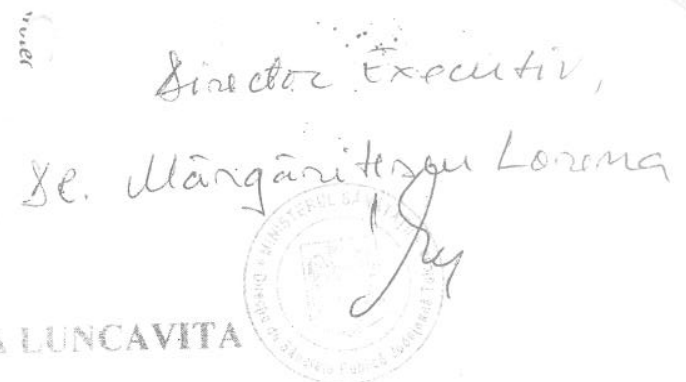 Director Executiv,
Dr. Mărgăritescu Lorena
MINISTERUL SĂNĂTĂȚII
Direcția de Sănătate Publică Județeană
A LUNCAVITA